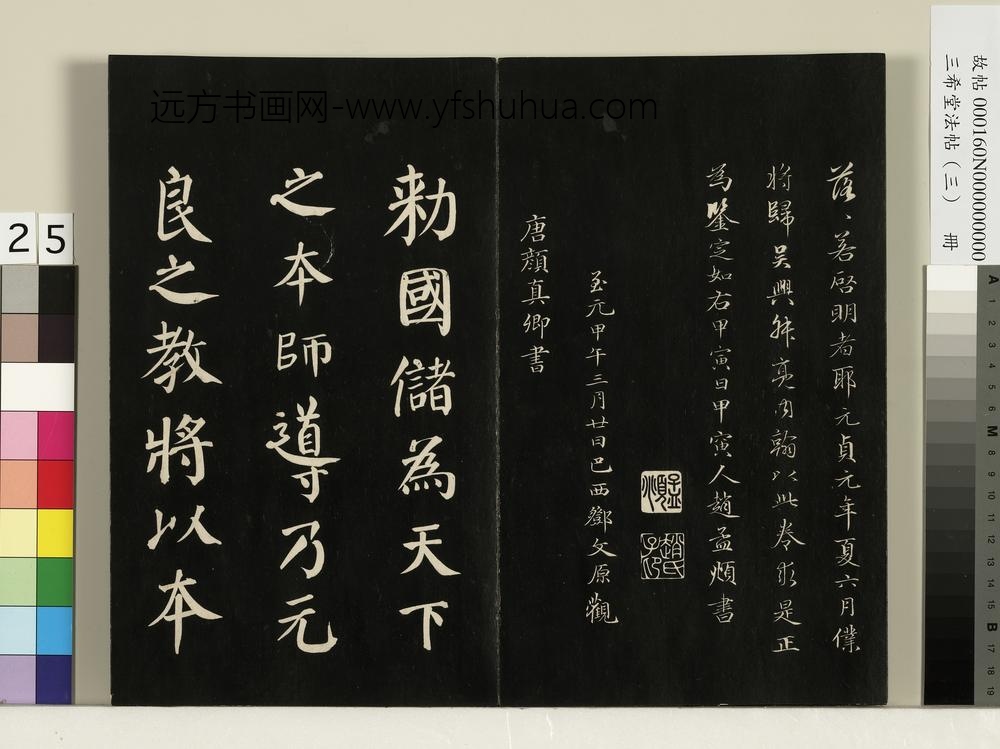 远方书画网-www.yfshuhua.com
落〻若啓明者耶元貞元年夏六月僕
將歸吳興舜亮內翰以此卷求是正
為鑒定如右甲寅日甲寅人趙孟頫書
孟頫
趙氏子昂
至元甲午三月廿日巴西鄧文原觀
唐顏真卿書
勑國儲為天下
之本師導乃元
良之教將以本
故帖 000160N000000000
三希堂法帖（三） 冊
25
A 1 2 3 4 5 6 M 8 9 10 11 12 13 14 15 B 17 18 19